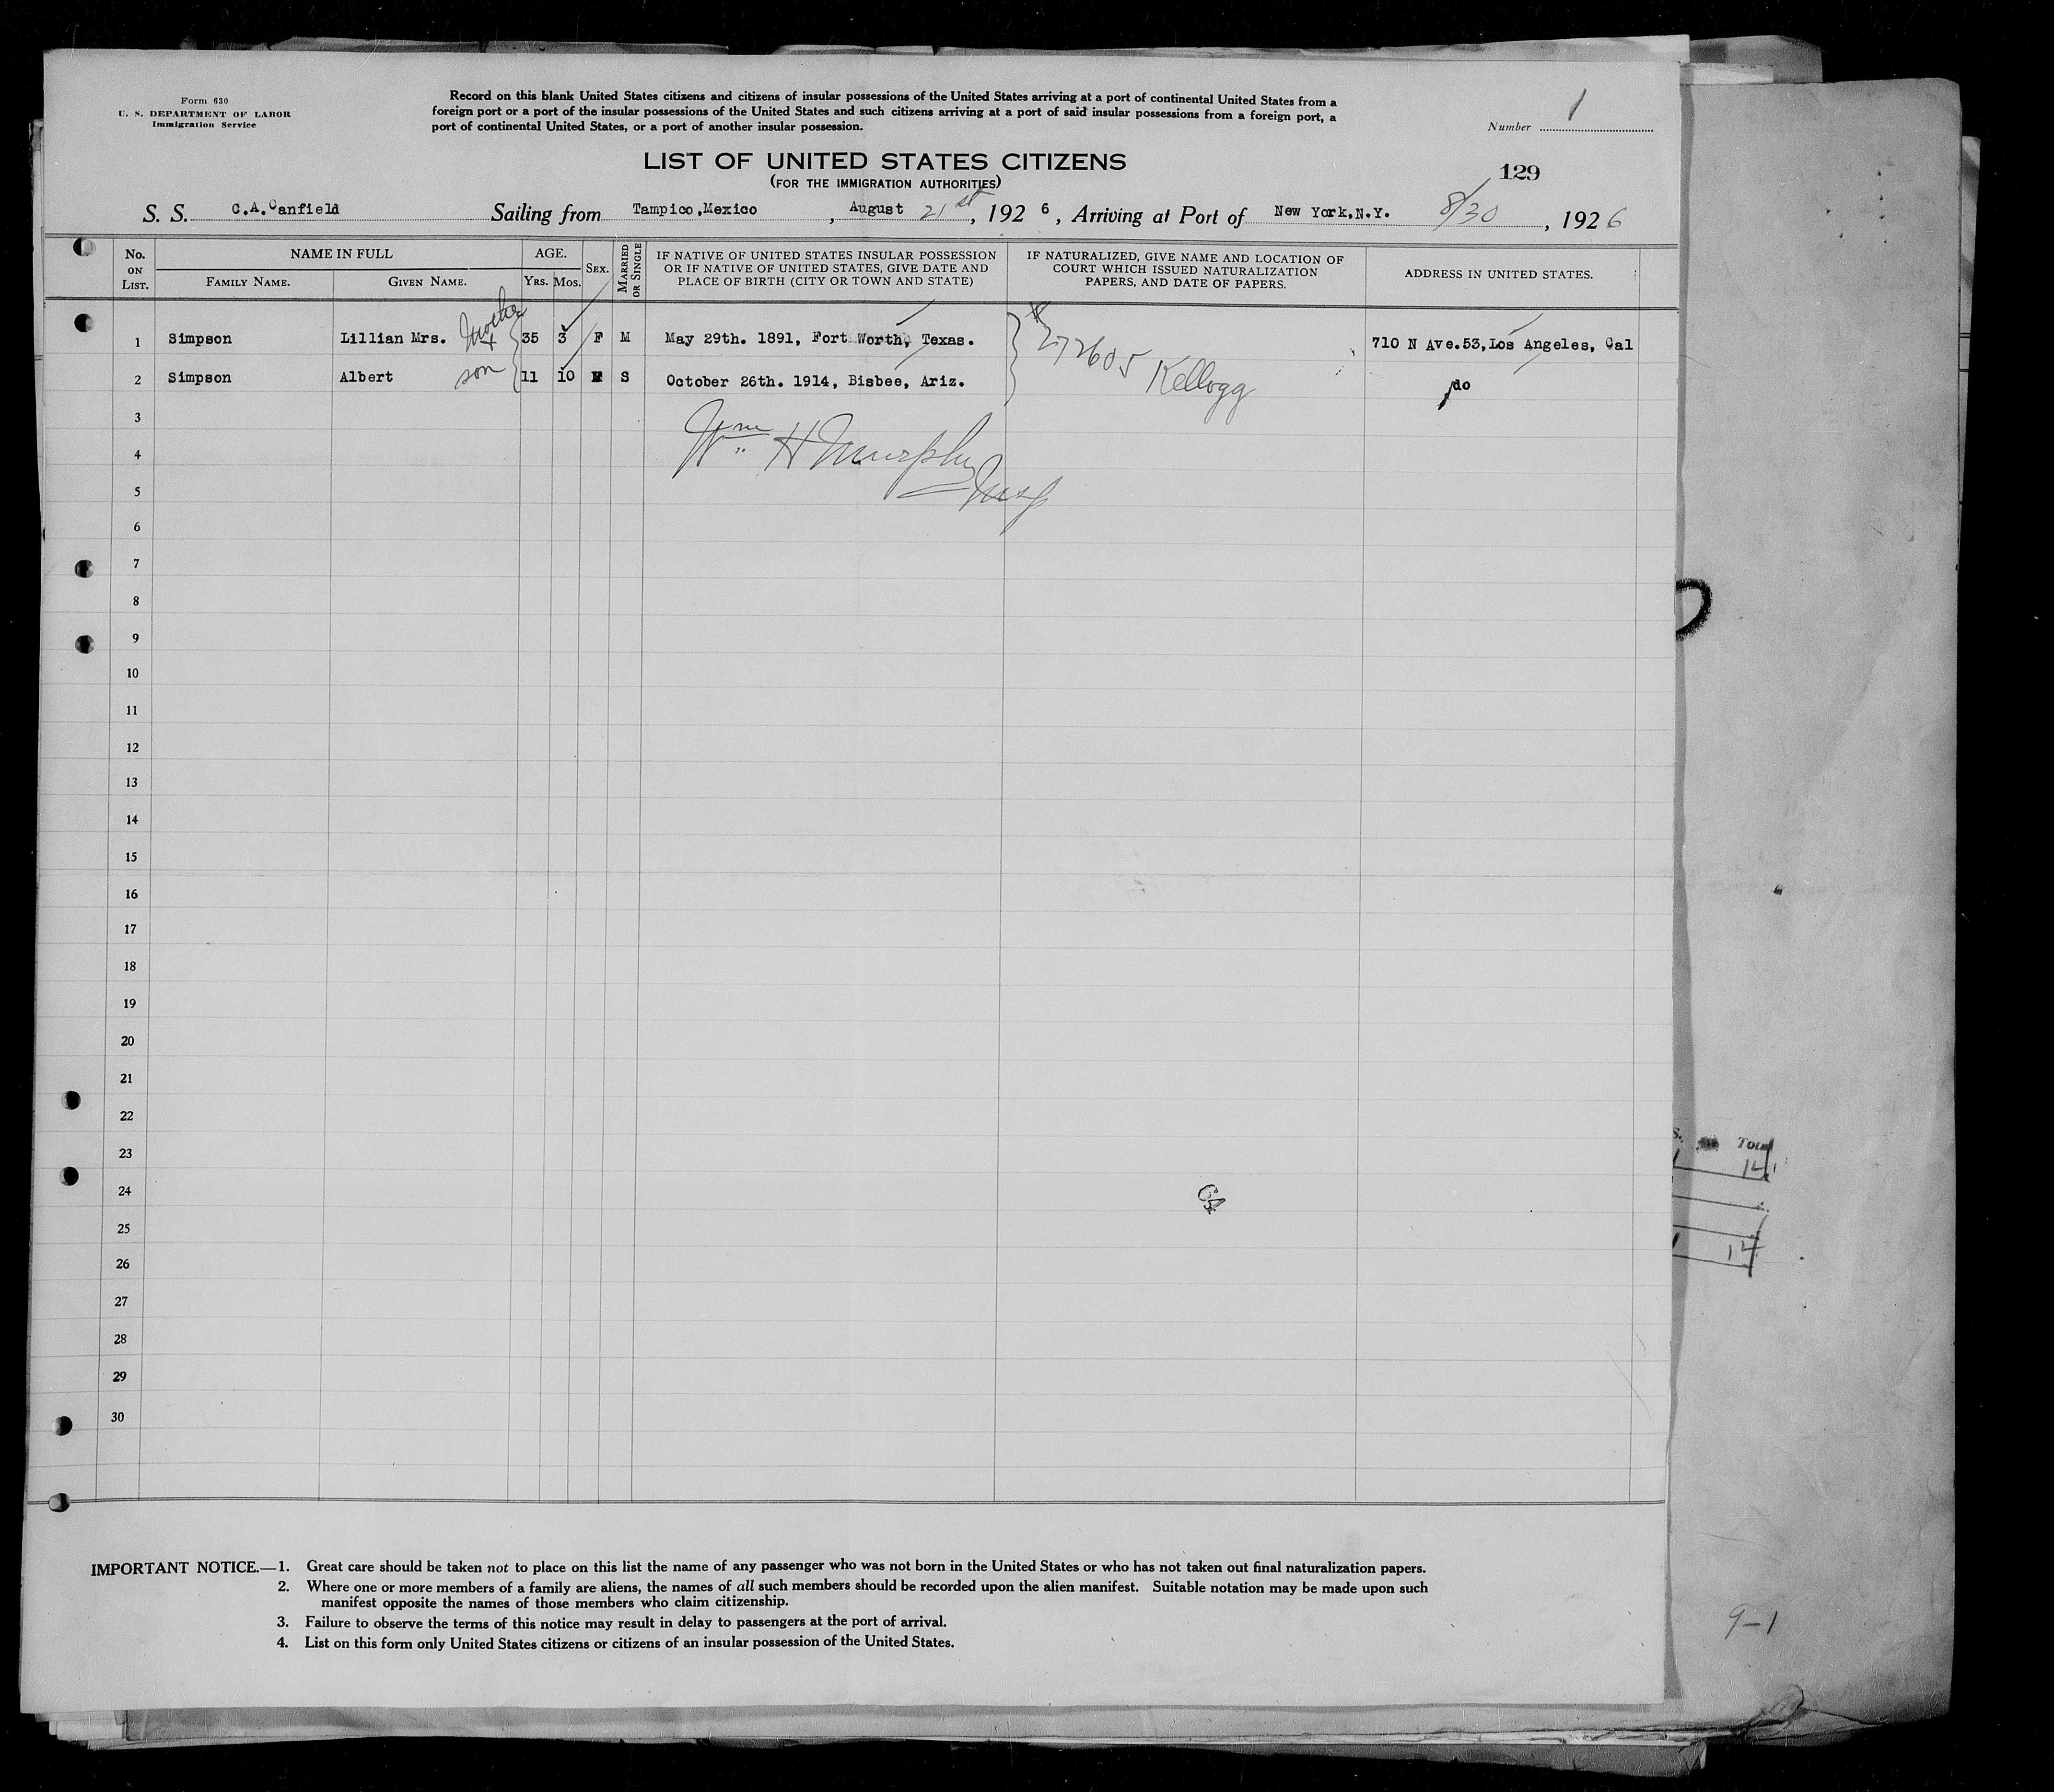 Form 630
U. S. DEPARTMENT OF LABOR
Immigration Service
Record on this blank United States citizens and citizens of insular possessions of the United States arriving at a port of continental United States from a
foreign port or a port of the insular possessions of the United States and such citizens arriving at a port of said insular possessions from a foreign port, a
port of continental United States, or a port of another insular possession.
Number 1
LIST OF UNITED STATES CITIZENS
(FOR THE IMMIGRATION AUTHORITIES)
129
S. S. C.A.Canfield Sailing from Tampico,Mexico, August 21st, 1926, Arriving at Port of New York,N.Y. 8/30, 1926
No. ON LIST. NAME IN FULL FAMILY NAME. GIVEN NAME. AGE. YRS. MOS. SEX. MARRIED OR SINGLE IF NATIVE OF UNITED STATES INSULAR POSSESSION OR IF NATIVE OF UNITED STATES, GIVE DATE AND PLACE OF BIRTH (CITY OR TOWN AND STATE) IF NATURALIZED, GIVE NAME AND LOCATION OF COURT WHICH ISSUED NATURALIZATION PAPERS, AND DATE OF PAPERS. ADDRESS IN UNITED STATES.
1 Simpson Lillian Mrs. Mother 35 3 F M May 29th. 1891, Fort Worth, Texas. 272605 710 N Ave.53,Los Angeles, Cal
2 Simpson Albert son 11 10 S October 26th. 1914, Bisbee, Ariz. Kellogg do
3
Wm H Murphy
4
Insp
5
6
7
8
9
10
11
12
13
14
15
16
17
18
19
20
21
22
23
24
25
26
27
28
29
30
Total
14
14
IMPORTANT NOTICE.—1. Great care should be taken not to place on this list the name of any passenger who was not born in the United States or who has not taken out final naturalization papers.
2. Where one or more members of a family are aliens, the names of all such members should be recorded upon the alien manifest. Suitable notation may be made upon such
manifest opposite the names of those members who claim citizenship.
3. Failure to observe the terms of this notice may result in delay to passengers at the port of arrival.
4. List on this form only United States citizens or citizens of an insular possession of the United States.
9-1